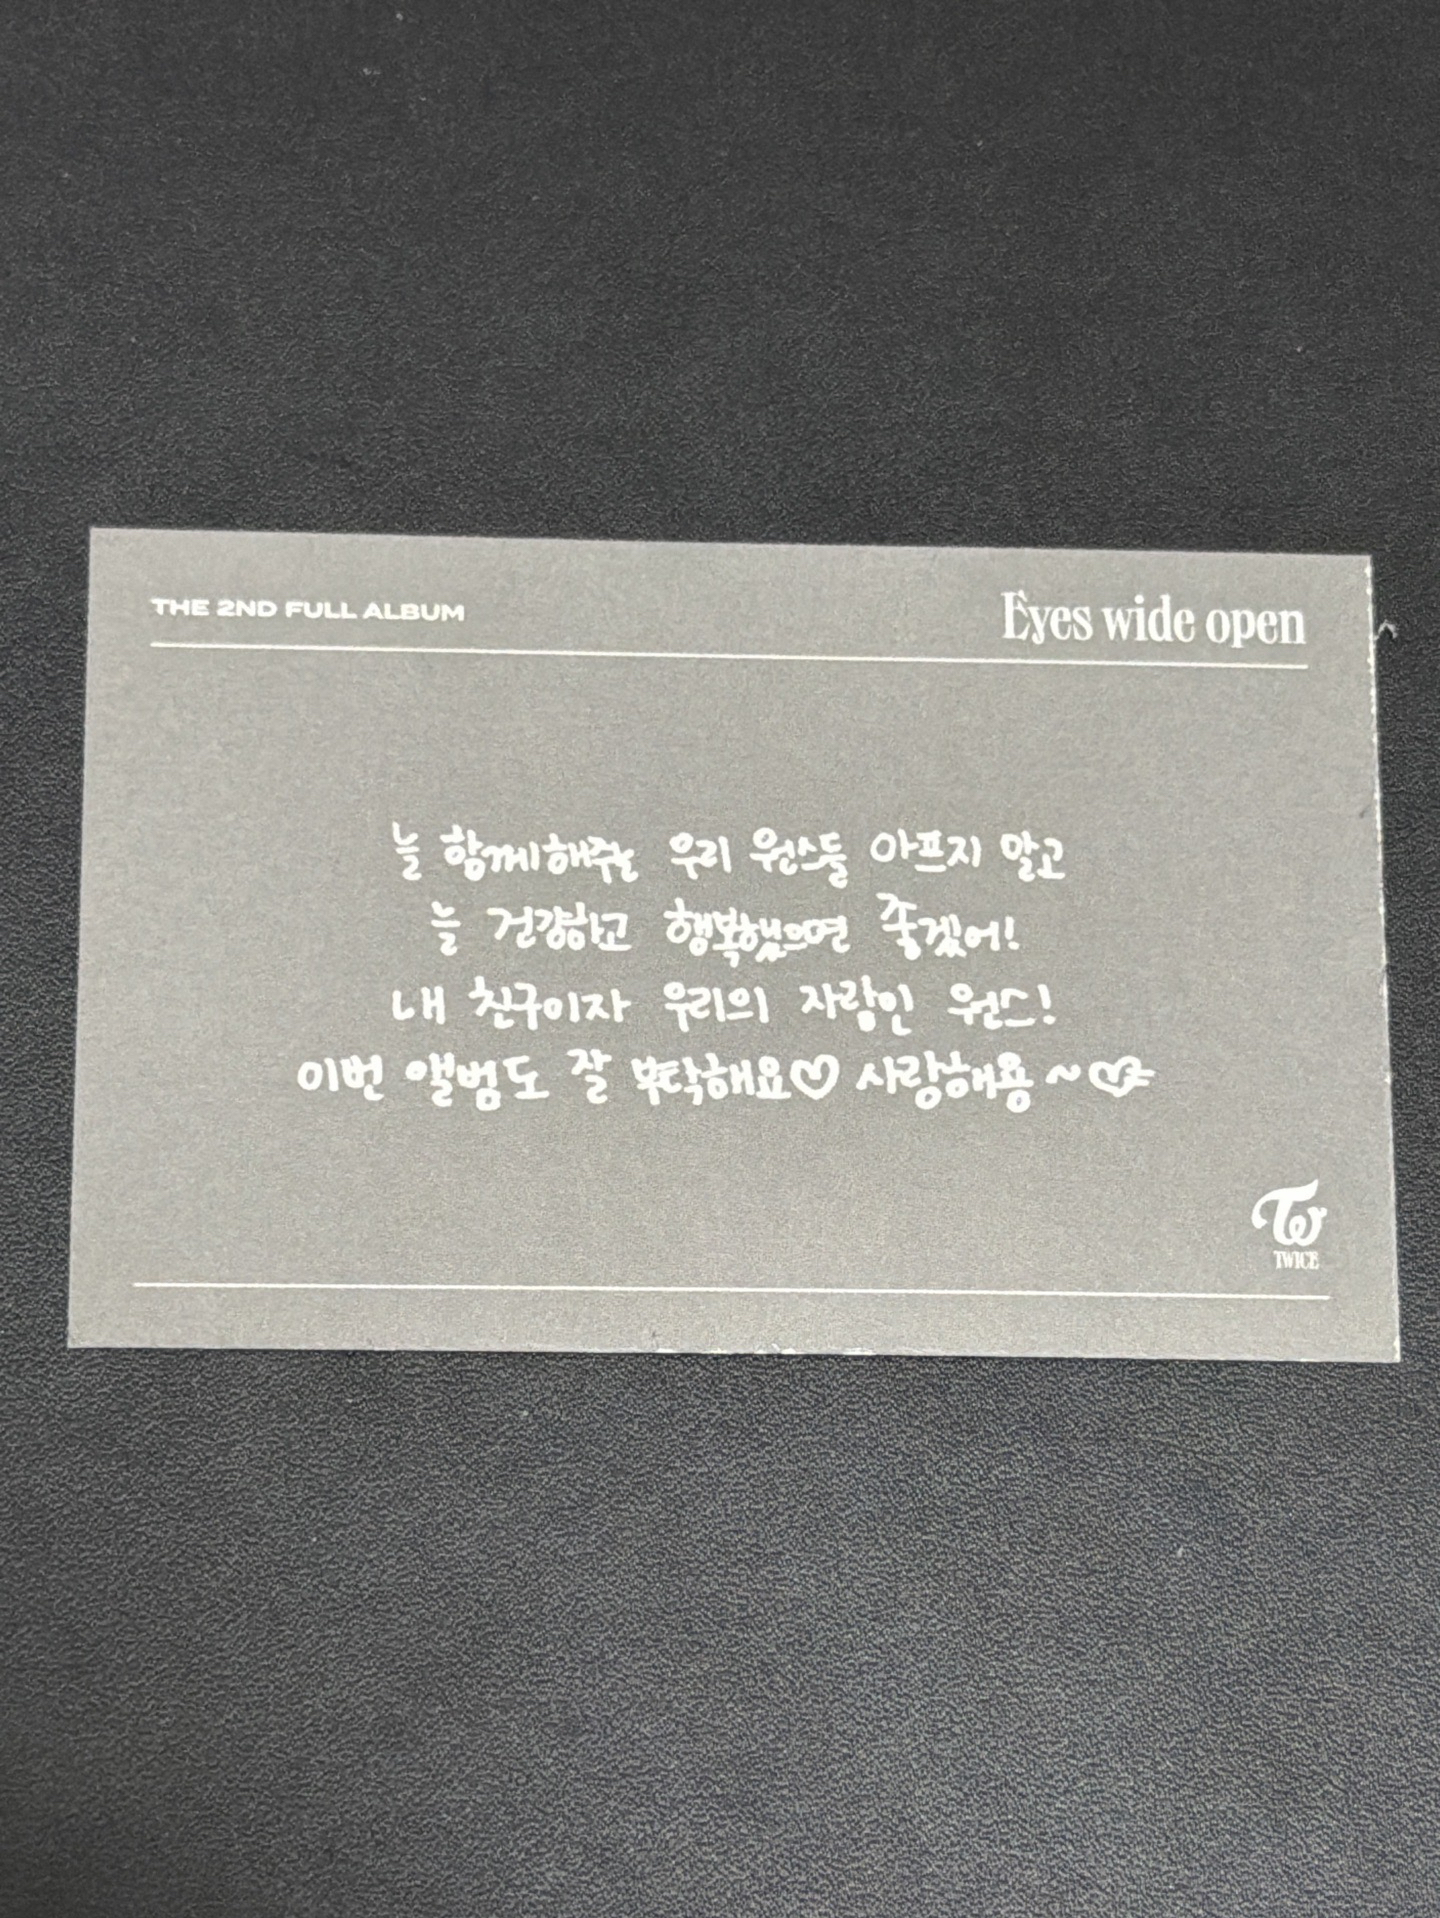 THE 2ND FULL ALBUM
Eyes wide open
늘 함께해주는 우리 원스들 아프지 말고
늘 건강하고 행복했으면 좋겠어!
내 친구이자 우리의 자랑인 원스!
이번 앨범도 잘 부탁해요♡ 사랑해용~♡
TW
TWICE